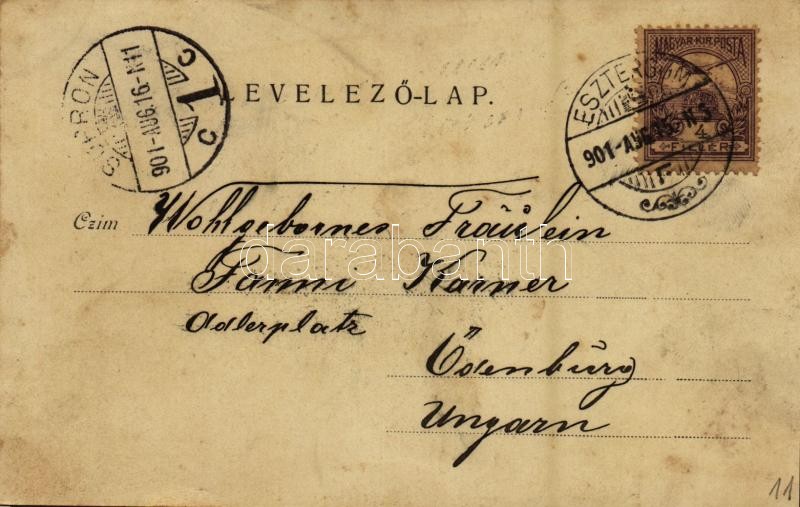 LEVELEZŐ-LAP.
SOPRON
901-AUG.16-N11
C 1 C
MAGYAR·KIR·POSTA
4
FILLÉR
ESZTERGOM
901-AUG.15-N5
Czim
Wohlgebornes Fräulein
Fanni Karner
Adlerplatz
Ödenburg
Ungarn
darabanth
11